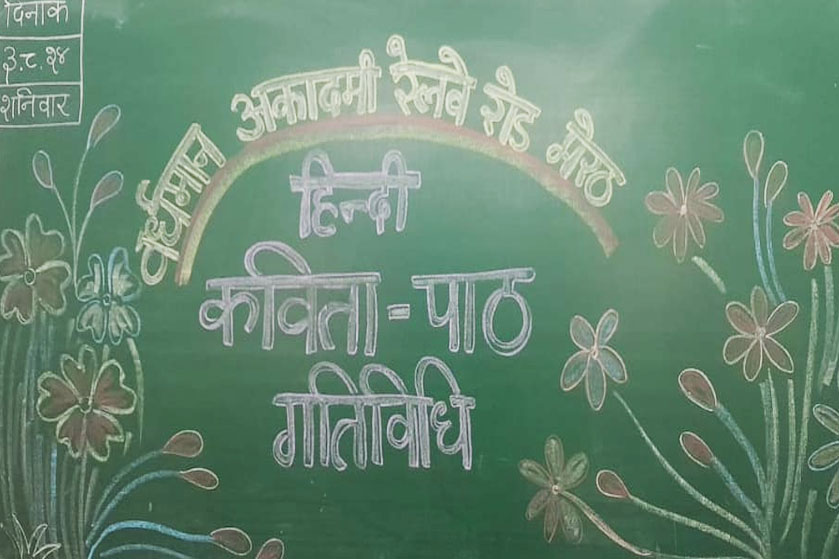 दिनांक
३.८.२४
शनिवार
वर्धमान अकादमी रेलवे रोड मेरठ
हिन्दी
कविता-पाठ
गतिविधि